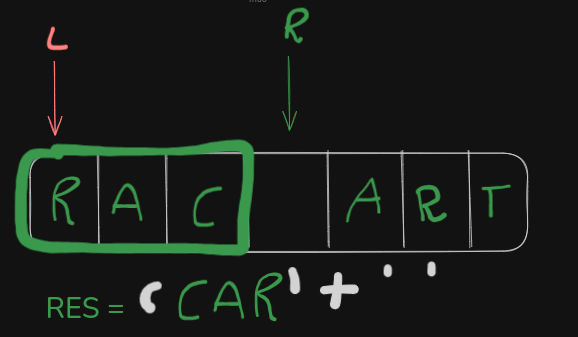 L R
R A C   A R T
RES = 'CAR' + ' '